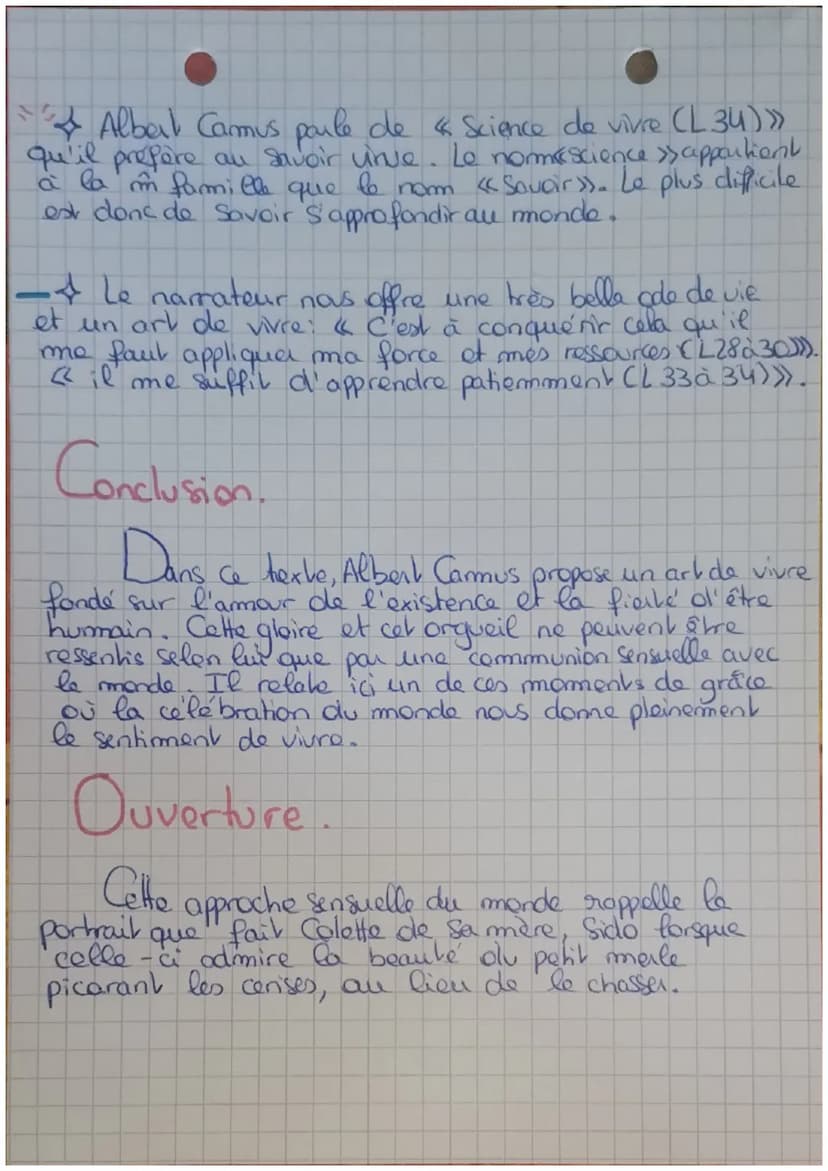 Albert Camus parle de « Science de vivre (L34) »
qu'il préfère au savoir vivre. Le nom « science » appartient
à la m̂ famille que le nom « Savoir ». Le plus difficile
est donc de savoir s'approfondir au monde.
Le narrateur nous offre une très belle ode de vie
et un art de vivre : « C'est à conquérir cela qu'il
me faut appliquer ma force et mes ressources (L28 à 30) ».
« il me suffit d'apprendre patiemment (L 33 à 34) ».
Conclusion.
Dans ce texte, Albert Camus propose un art de vivre
fondé sur l'amour de l'existence et la fierté d'être
humain. Cette gloire et cet orgueil ne peuvent être
ressentis selon lui que par une communion sensuelle avec
le monde. Il relate ici un de ces moments de grâce
où la célébration du monde nous donne pleinement
le sentiment de vivre.
Ouverture.
Cette approche sensuelle du monde rappelle le
portrait que fait Colette de sa mère, Sido lorsque
celle-ci admire la beauté du petit merle
picorant les cerises, au lieu de le chasser.